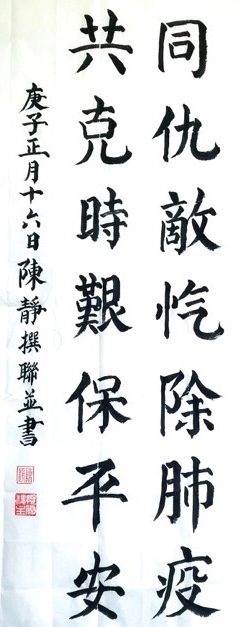 同仇敵忾除肺疫
共克時艱保平安
庚子正月十六日陳靜撰聯並書